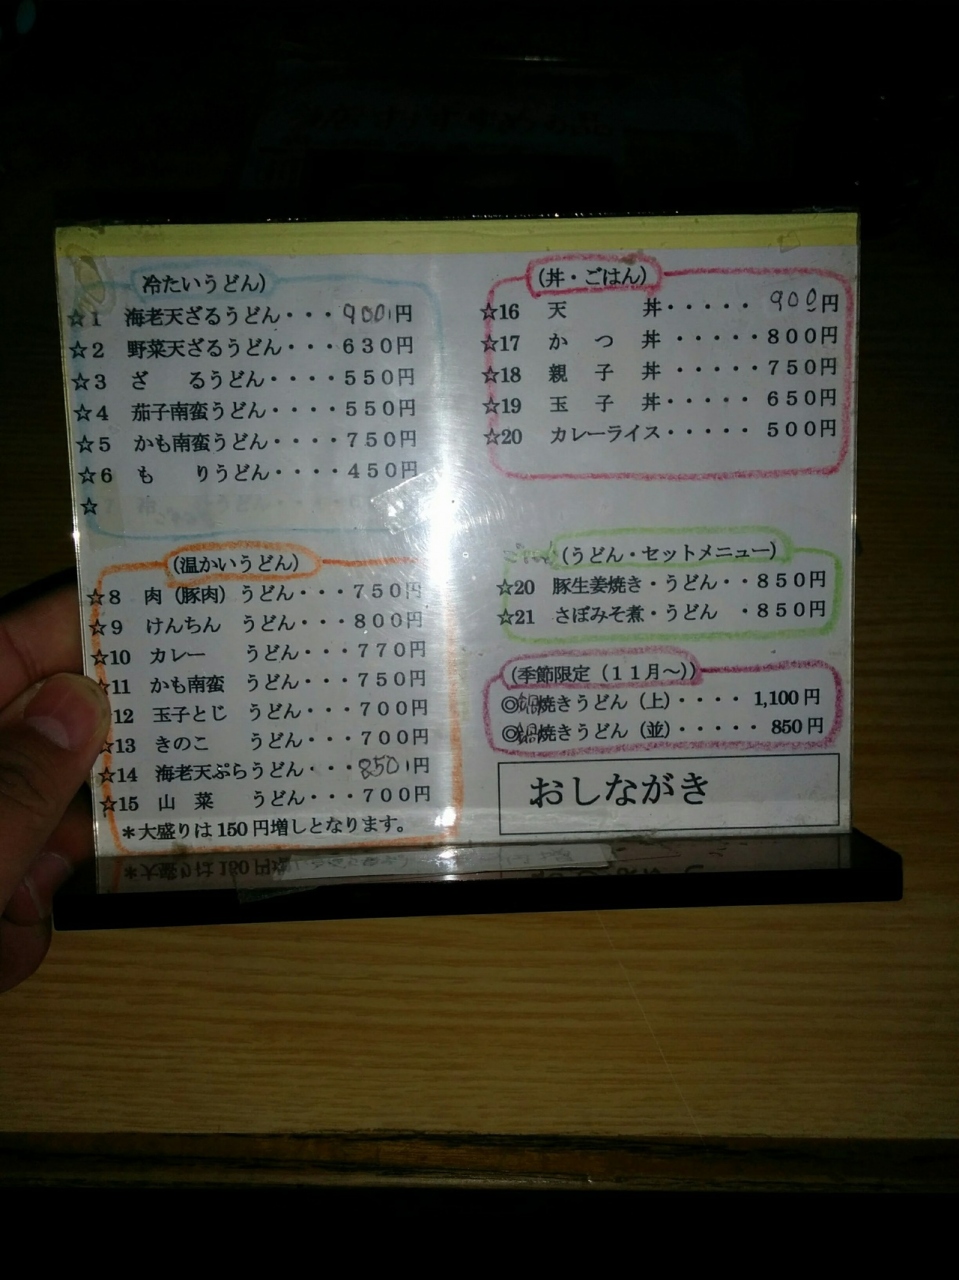 冷たいうどん)
☆1 海老天ざるうどん・・・900円
☆2 野菜天ざるうどん・・・630円
☆3 ざ るうどん・・・・550円
☆4 茄子南蛮うどん・・・・550円
☆5 かも南蛮うどん・・・・750円
☆6 も りうどん・・・・450円
☆7
(温かいうどん)
☆8 肉(豚肉) うどん・・・750円
☆9 けんちん うどん・・・800円
☆10 カレー うどん・・・770円
☆11 かも南蛮 うどん・・・750円
12 玉子とじ うどん・・・700円
☆13 きのこ うどん・・・700円
☆14 海老天ぷらうどん・・・850円
☆15 山 菜 うどん・・・700円
*大盛りは150円増しとなります。
(丼・ごはん)
☆16 天 丼・・・・・900円
☆17 か つ 丼・・・・・800円
☆18 親 子 丼・・・・・750円
☆19 玉 子 丼・・・・・650円
☆20 カレーライス・・・・・500円
(うどん・セットメニュー)
☆20 豚生姜焼き・うどん・・850円
☆21 さばみそ煮・うどん ・850円
(季節限定(11月~))
◎鍋焼きうどん(上)・・・・1,100円
◎鍋焼きうどん(並)・・・・・850円
おしながき